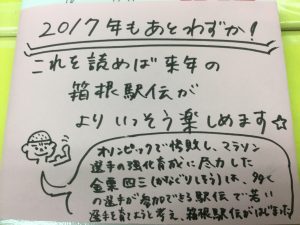 2017年もあとわずか!
これを読めば来年の
箱根駅伝が
よりいっそう楽しめます☆
オリンピックで惨敗し、マラソン
選手の強化育成に尽力した
金栗四三(かなぐりしそう)は、多く
の選手が参加できる駅伝で若い
選手を育てようと考え、箱根駅伝がはじまった